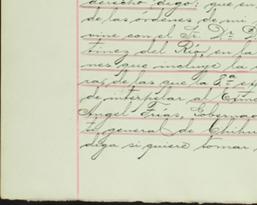 derecho digo: que en
de las ordenes de mi
vine con el Sr. Dr. D
tinez del Rio, en la
nes que incluye la
ras, de las que la 2ª
de interpelar al
Angel Frias, Gobernad
te general de Chihu
diga si quiere tomar